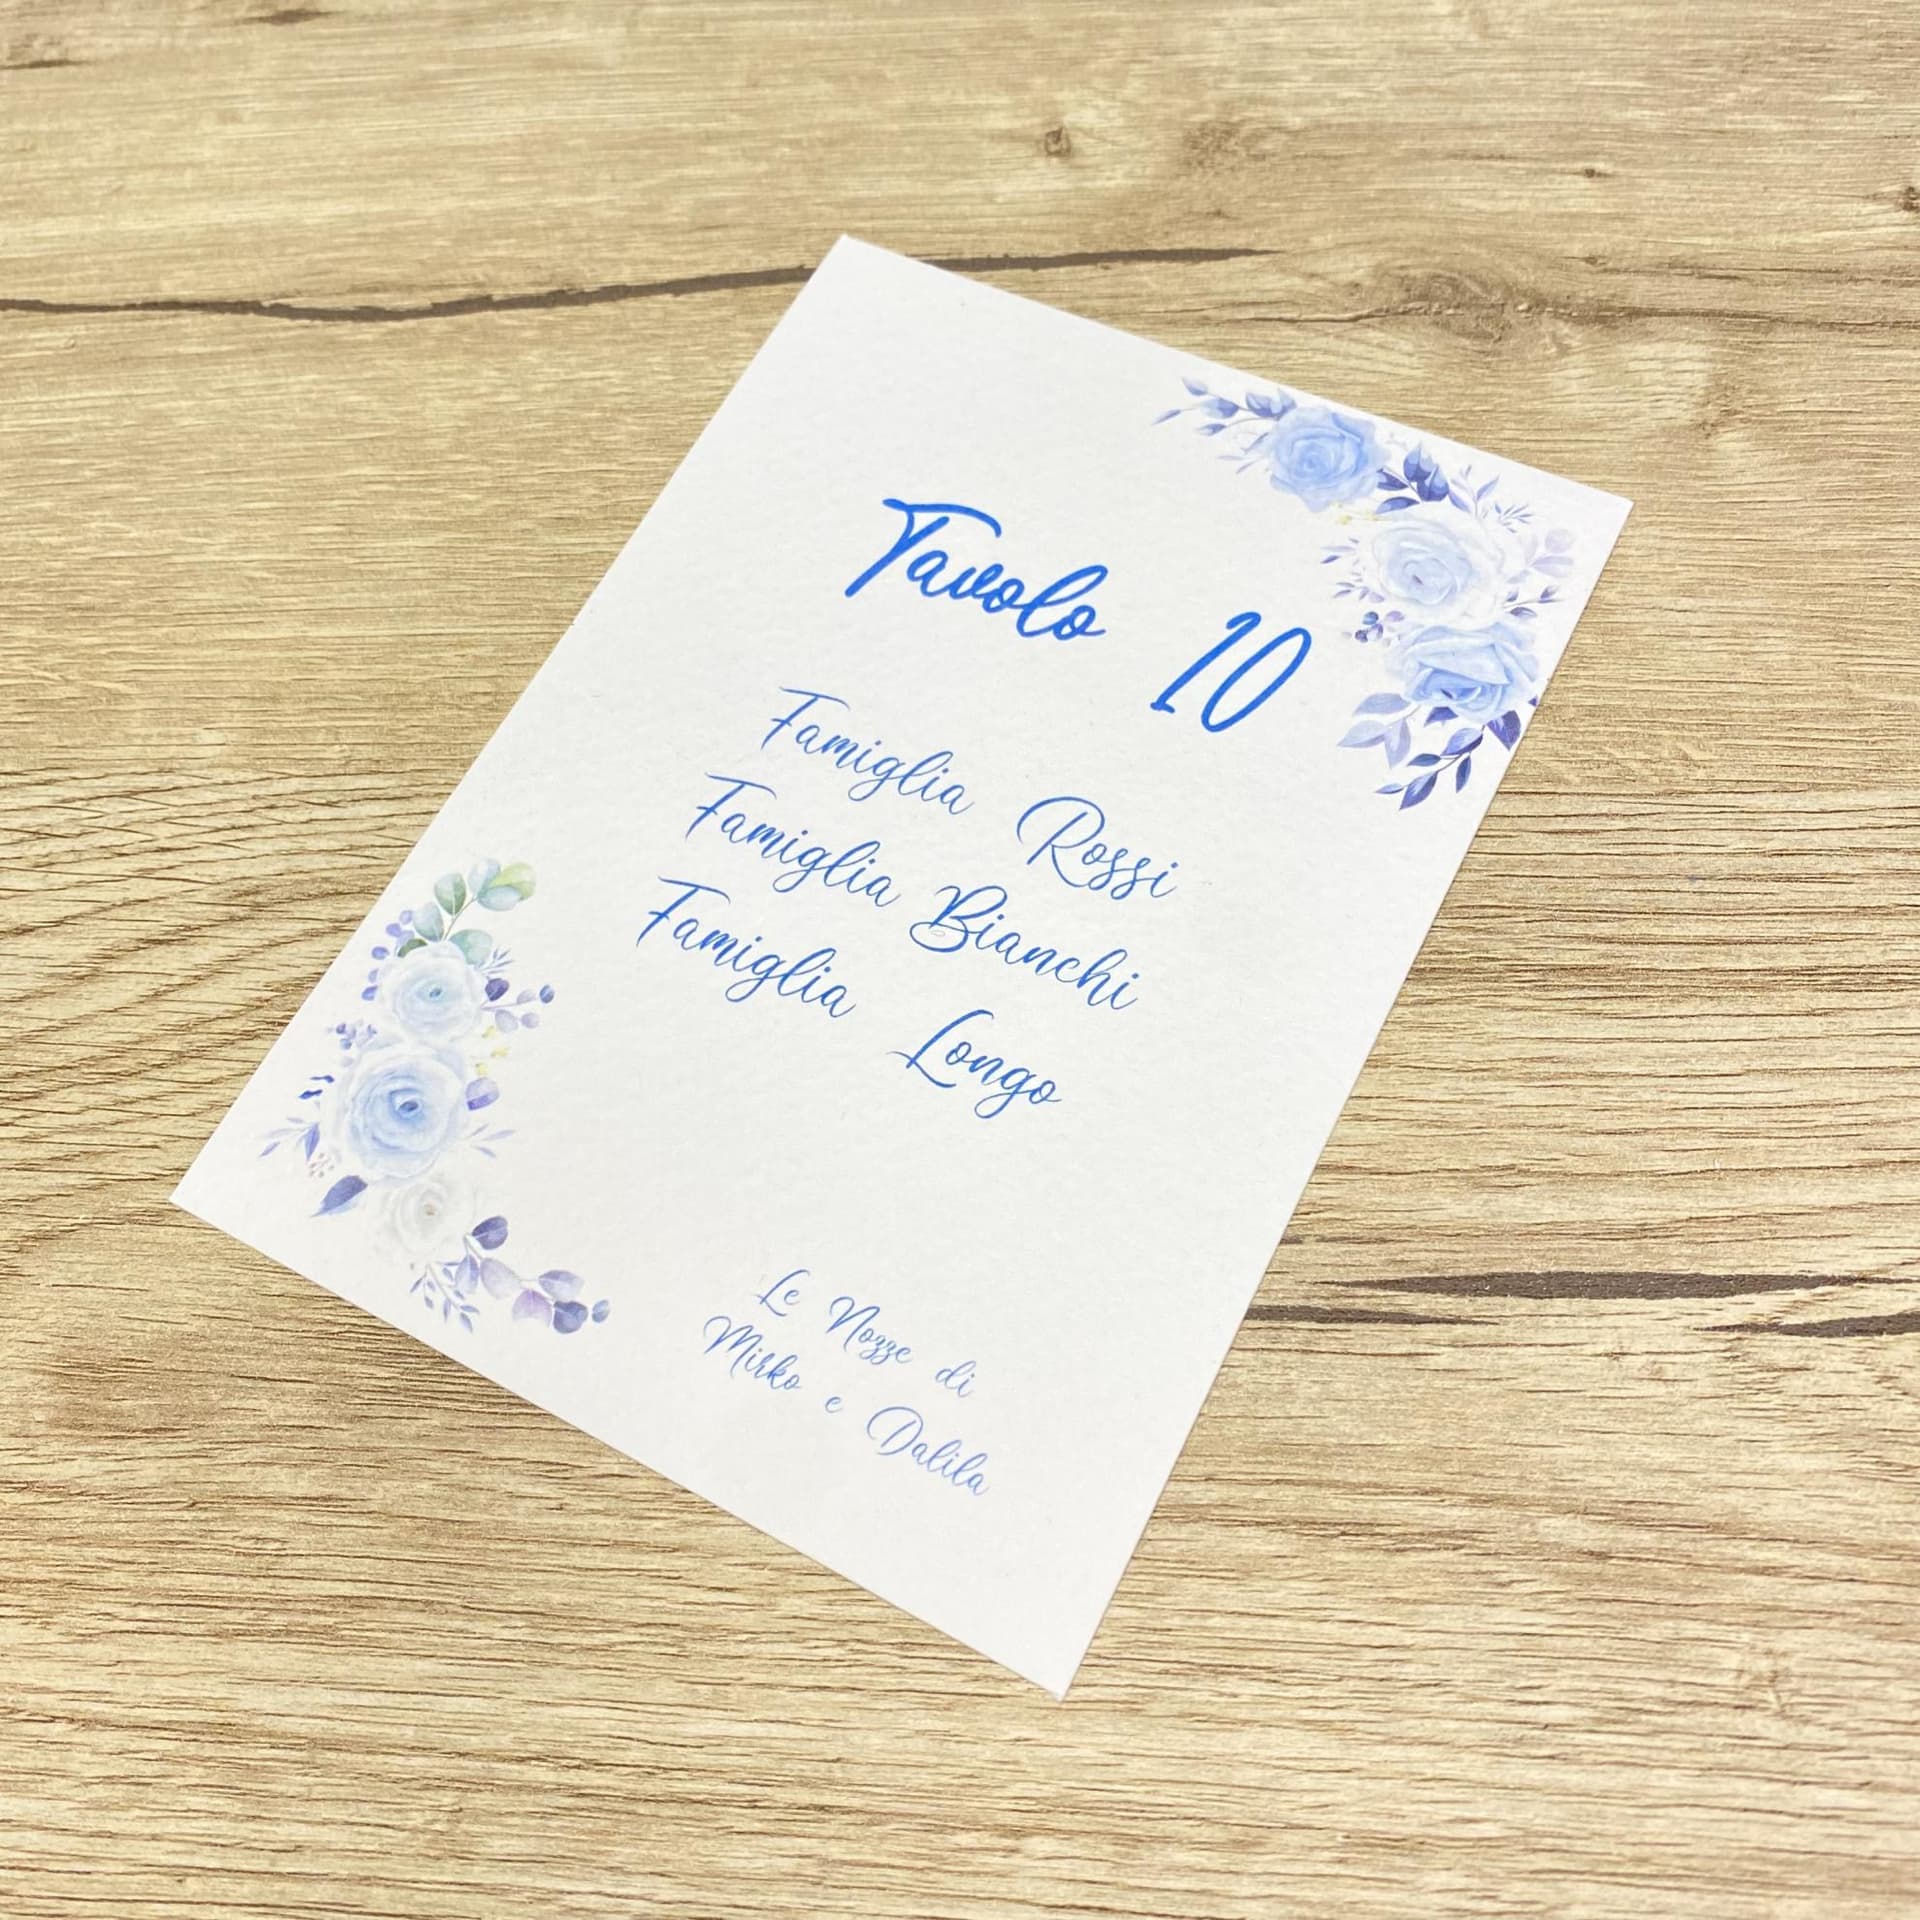 Tavolo 10
Famiglia Rossi
Famiglia Bianchi
Famiglia Longo
Le Nozze di
Mirko e Dalila